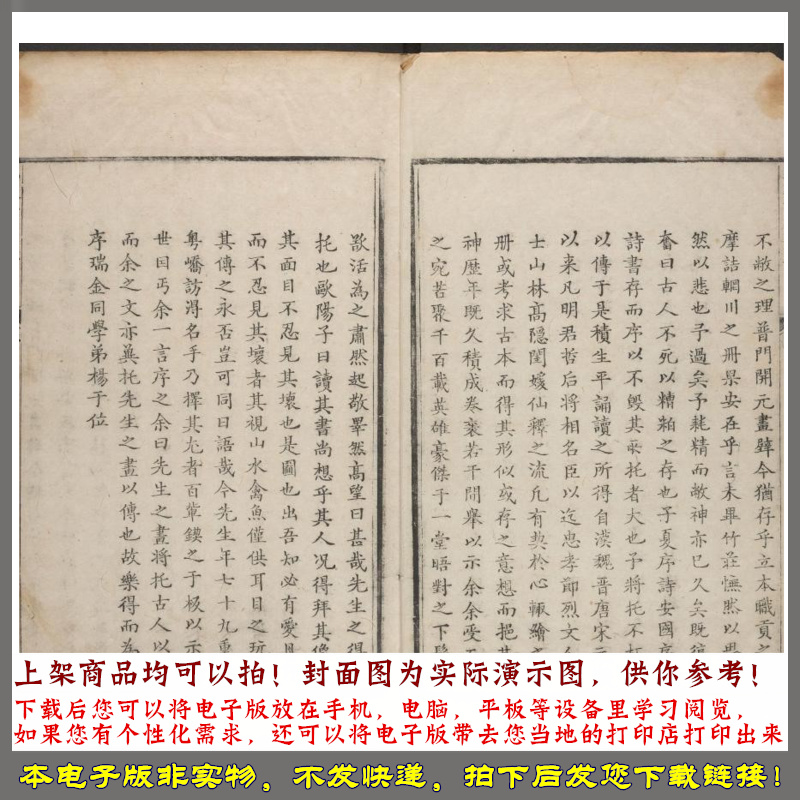 不敝之理普門開元畫壁今猶存乎立本職貢之
摩詰輞川之冊果安在乎言未畢竹莊憮然以思
然以悲也予過矣予耗精而敝神亦已久矣既
奮曰古人不死以糟粕之存也子夏序詩安國序
詩書存而序以不毀其所托者大也予將托不朽
以傳于是積生平誦讀之所得自漢魏晉唐宋元
以来凡明君哲后將相名臣以迄忠孝節烈文人
士山林高隱閨媛仙釋之流凡有契於心輒繪之
册或考求古本而得其形似或存之意想而挹其
神歷年既久積成卷袠若干間舉以示余余受而
之宛若聚千百載英雄豪傑于一堂晤對之下
活為之肅然起敬睪然高望曰甚哉先生之得
托也歐陽子曰讀其書尚想乎其人况得拜其像
其面目不忍見其壞也是圖也出吾知必有愛且
而不忍見其壞者其視山水禽魚僅供耳目之玩
其傳之永否豈可同日語哉今先生年七十九重
粤嶓訪淂名手乃擇其尤者百軰鏌之于板以示
世曰丐余一言序之余曰先生之畫將托古人以
而余之文亦與托先生之畫以傳也故樂得而為
序瑞金同學弟楊于位
上架商品均可以拍！封面图为实际演示图，供你参考！
下载后您可以将电子版放在手机，电脑，平板等设备里学习阅览，
如果您有个性化需求，还可以将电子版带去您当地的打印店打印出来
本电子版非实物，不发快递，拍下后发您下载链接！